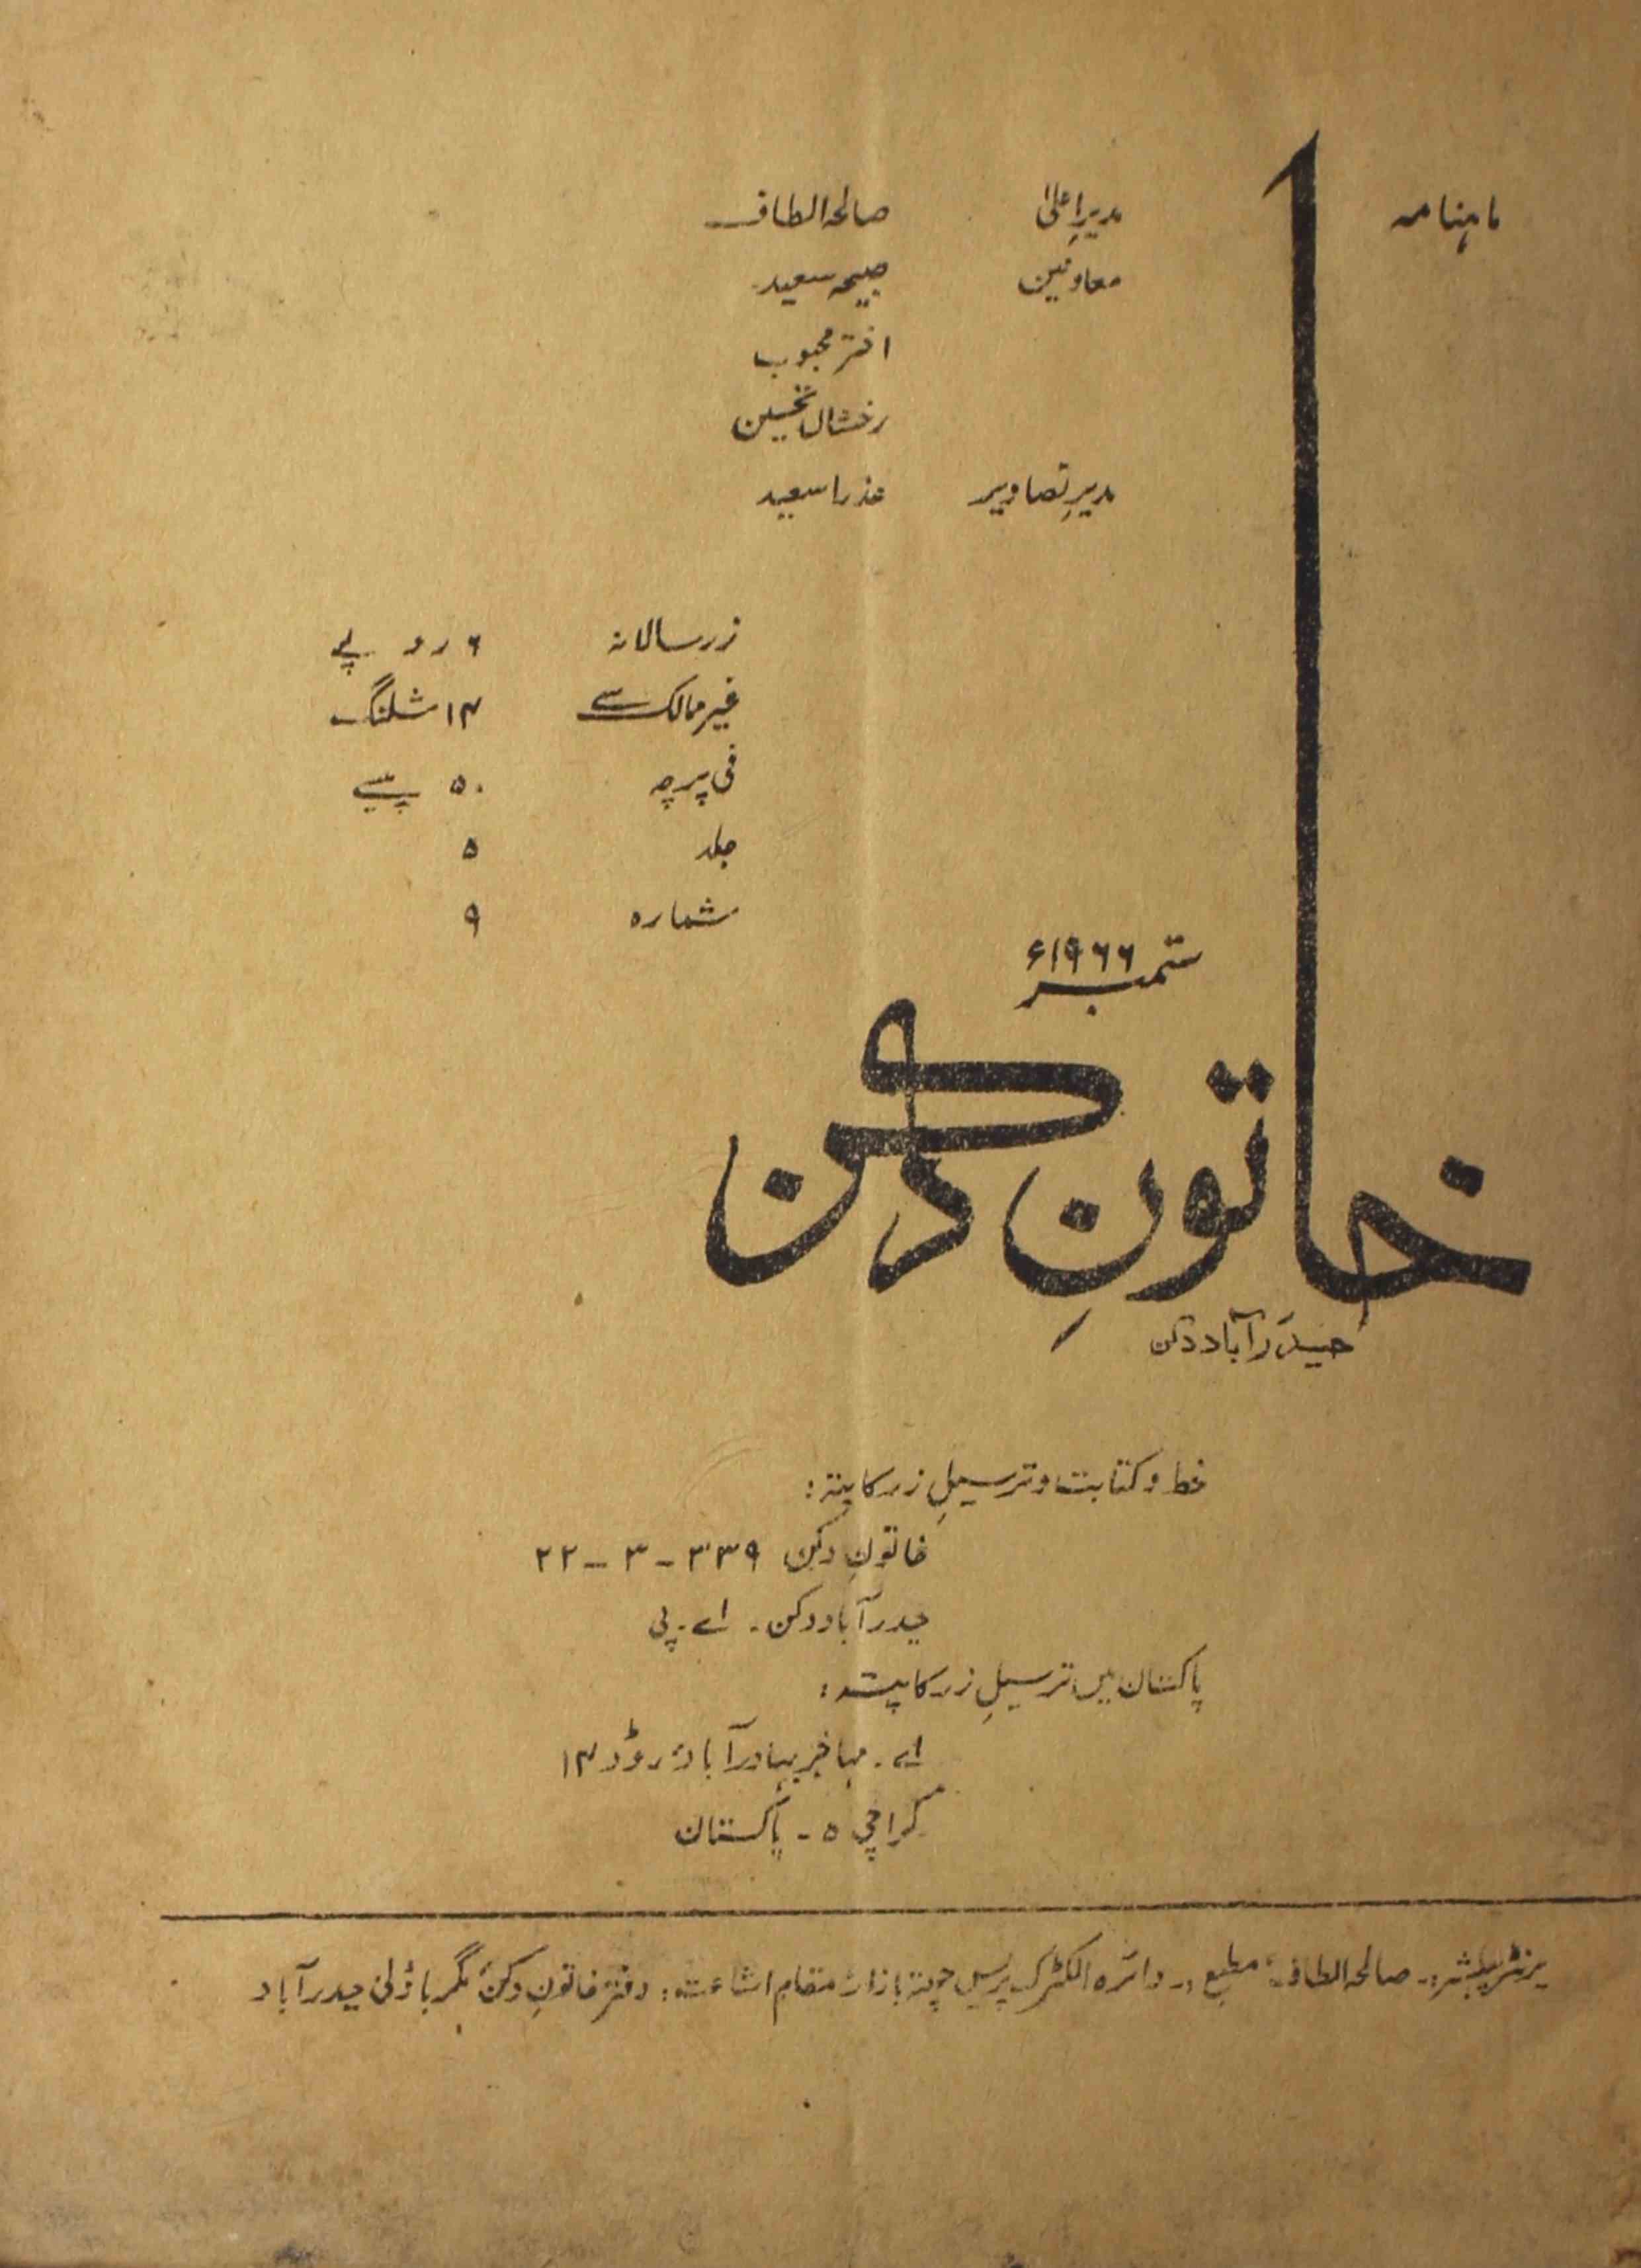 ماہنامہ
مدیرِ اعلیٰ صالحہ الطاف
معاونین صبیحہ سعید
اختر محبوب
رخشاں تحسین
مدیرِ تصاویر عذرا سعید
زر سالانہ ۶ روپے
غیر ممالک سے ۱۴ شلنگ
فی پرچہ ۵۰ پیسے
جلد ۵
شمارہ ۹
ستمبر ۱۹۶۶ء
خاتونِ دکن
حیدرآباد دکن
خط و کتابت و ترسیلِ زر کا پتہ:
خاتونِ دکن ۳۳۹ – ۳ – ۲۲
حیدرآباد دکن ۔ اے ۔ پی
پاکستان میں ترسیلِ زر کا پتہ:
اے ۔ مہاجر بہادرآباد، روڈ ۱۴
کراچی ۵ ۔ پاکستان
پرنٹر پبلشر:۔ صالحہ الطاف، مطبع :۔ دائرہ الکٹرک پریس چھتہ بازار، مقامِ اشاعت: دفتر خاتونِ دکن، باؤلی حیدرآباد